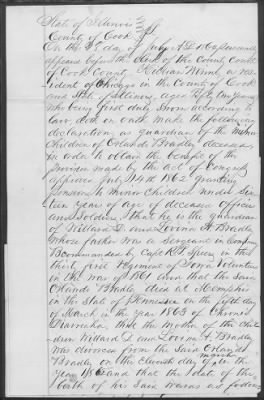 State of Illinois
County of Cook
On this day of July A D 1869 personally
appeared before the Clerk of the County Court
of Cook County William Wink a res-
ident of Chicago in the County of Cook
and State of Illinois aged fifty two years
who being first duly sworn according to
law doth on oath make the following
declaration as guardian of the minor
Children of Orlando Bradley deceased
in order to obtain the benefit of the
provision made by the act of Congress
approved July 14th 1862 granting
pensions to minor children under Six-
teen years of age of deceased officers
and soldiers, that he is the guardian
of Willard D. and Lovina A. Bradley
whose father was a Sergeant in Company
B commanded by Capt R. L. in the
thirty first regiment of Iowa Volunteers
in the war of 1861 and that the said
Orlando Bradley died at Memphis
in the State of Tennessee on the fifth day
of March in the year 1863 of Chronic
Diarrhea, that the mother of the chil-
dren Willard D. and Lovina A. Bradley
was divorced from the said Orlando
Bradley on the Eleventh day of in the
year and that the date of the
birth of his said wards as follows